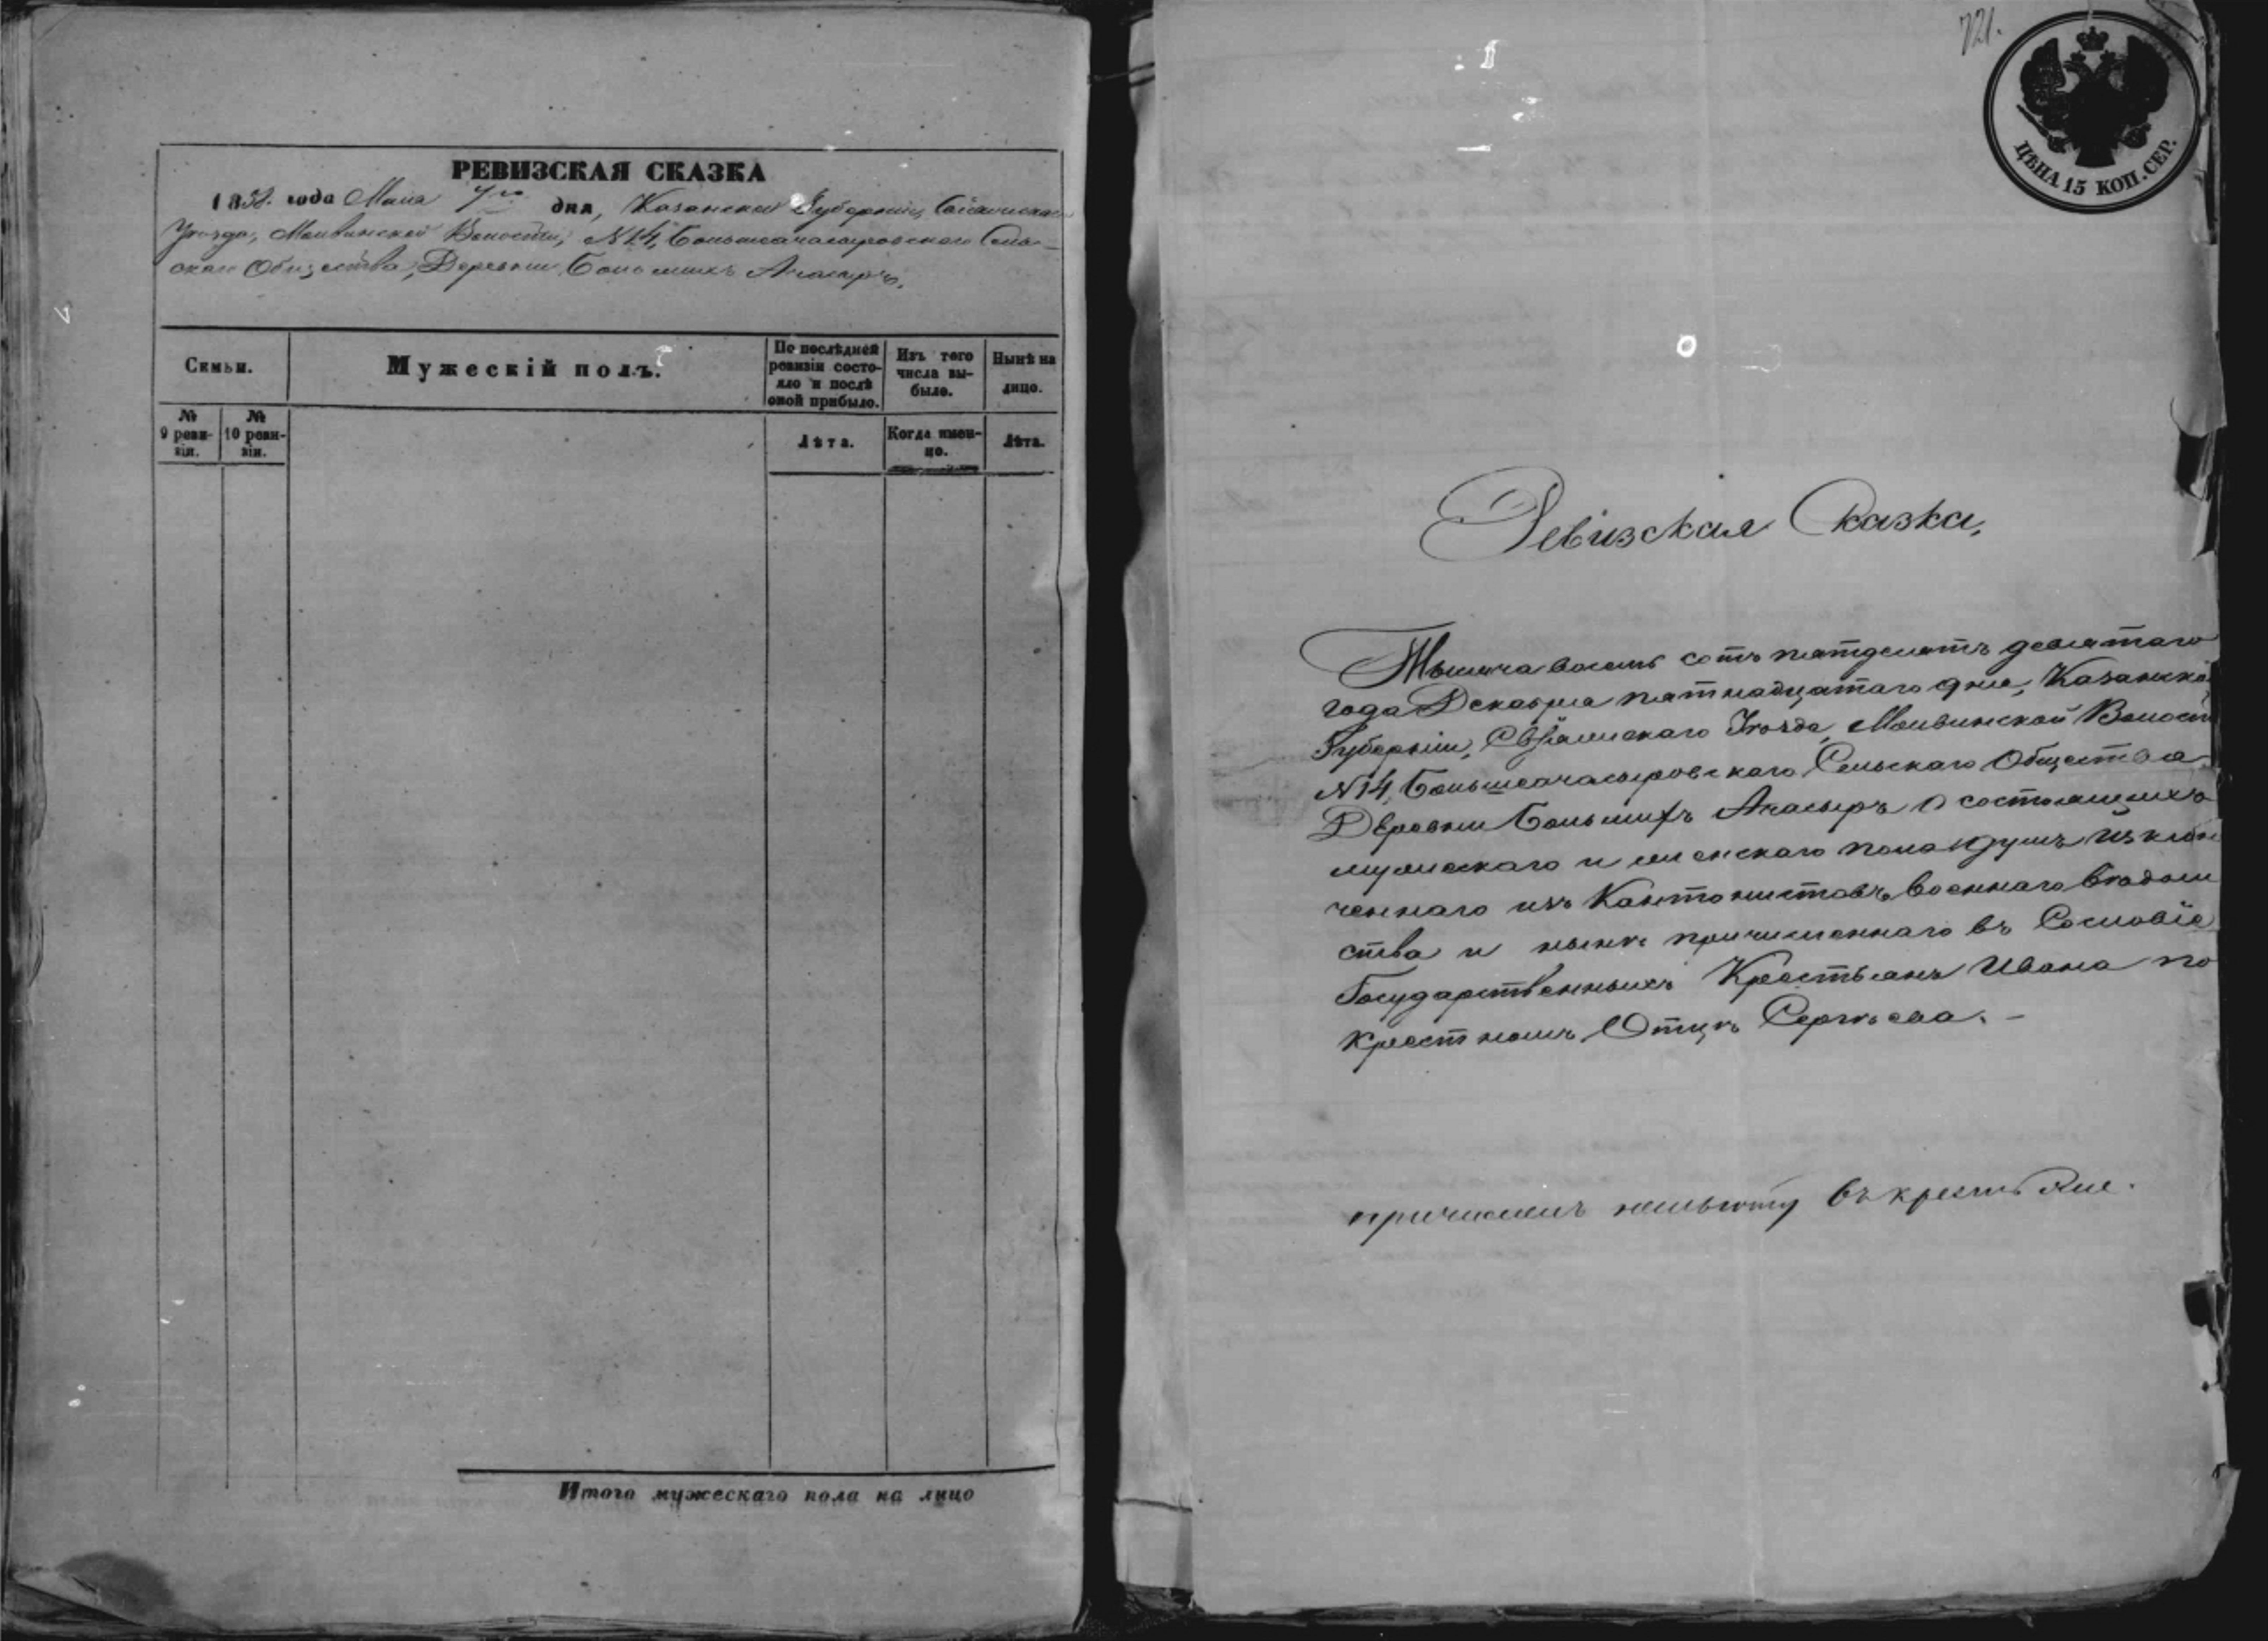 РЕВИЗСКАЯ СКАЗКА
1858. года Маiя 7го дня, Казанской Губернiи, Свiяжскаго
Уѣзда, Молвинской Волости, № 14, Большеачасыровскаго Сель-
скаго Общества, Деревни Большихъ Ачасыръ.
Семьи.
Мужескiй полъ.
По послѣдней ревизiи состо-
яло и послѣ оной прибыло.
Изъ того числа вы-
было.
Нынѣ на лицо.
№ 9 реви-
зiи.
№ 10 реви-
зiи.
Лѣта.
Когда имен-
но.
Лѣта.
Итого мужескаго пола на лицо
721.
ЦѢНА 15 КОП. СЕР.
Ревизская Сказка,
Тысяча восемь сотъ пятдесятъ девятаго
года Декабря пятнадцатаго дня, Казанской
Губернiи, Свiяжскаго Уѣзда, Молвинской Волости
№ 14, Большеачасыровскаго Сельскаго Общества
Деревни Большихъ Ачасыръ о состоящихъ
мужескаго и женскаго пола душъ изклю-
ченнаго изъ Кантонистовъ военнаго вѣдом
ства и нынѣ причисленнаго въ Сословiе
Государственныхъ Крестьянъ Ивана по
крестномъ Отцѣ Сергѣева. –
причисленъ въ крестьяне.